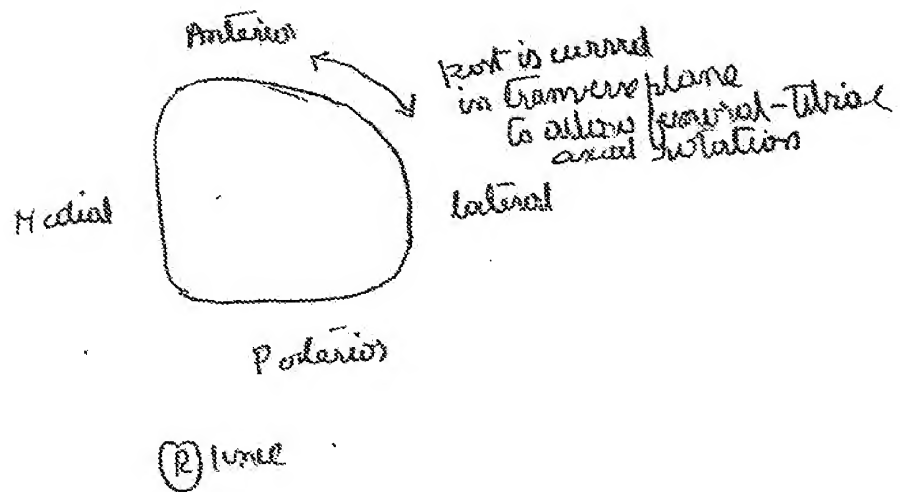 Anterior
Post is curved
in transverse plane
to allow femoral-tibial
axial rotation
Medial
lateral
Posterior
R knee